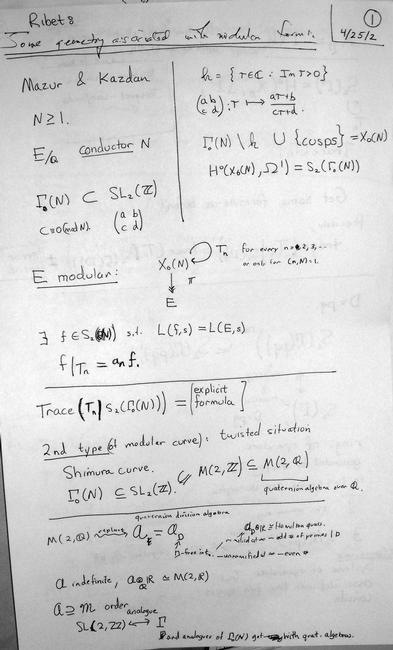 Ribet 8
①
4/25/2
Some geometry associated with modular forms.
Mazur & Kazdan
N ≥ 1.
E/Q conductor N
Γ₀(N) ⊂ SL₂(ℤ)
c≡0(mod N). (a b / c d)
h = {τ∈ℂ : Im τ>0}
(a b / c d) : τ ↦ aτ+b / cτ+d.
Γ₀(N) \ h ∪ {cusps} = X₀(N)
H⁰(X₀(N), Ω¹) = S₂(Γ₀(N))
E modular:
X₀(N) Tₙ for every n=1,2,3,...
or only for (n,N)=1.
π
E
∃ f ∈ S₂(N) s.t. L(f,s) = L(E,s)
f|Tₙ = aₙf.
Trace(Tₙ| S₂(Γ₀(N))) = [explicit formula]
2nd type (of modular curve): twisted situation
Shimura curve.
Γ₀(N) ⊆ SL₂(ℤ). M(2,ℤ) ⊆ M(2,ℚ)
quaternion algebra over ℚ.
quaternion division algebra
M(2,ℚ) replace a = a_D
D-free int.
a_D⊗ℝ ≅ Hamilton quats.
ramified at ∞ — odd # of primes | D
unramified at ∞ — even #
a indefinite, a⊗ℝ ≃ M(2,ℝ)
ℚ
a ⊇ m order
analogue
SL(2,ℤ) ↔ Γ
and analogues of Γ₀(N) get with quat. algebras.